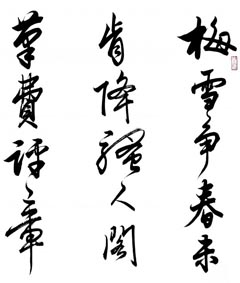 梅雪争春未
肯降騷人閣
筆費評章